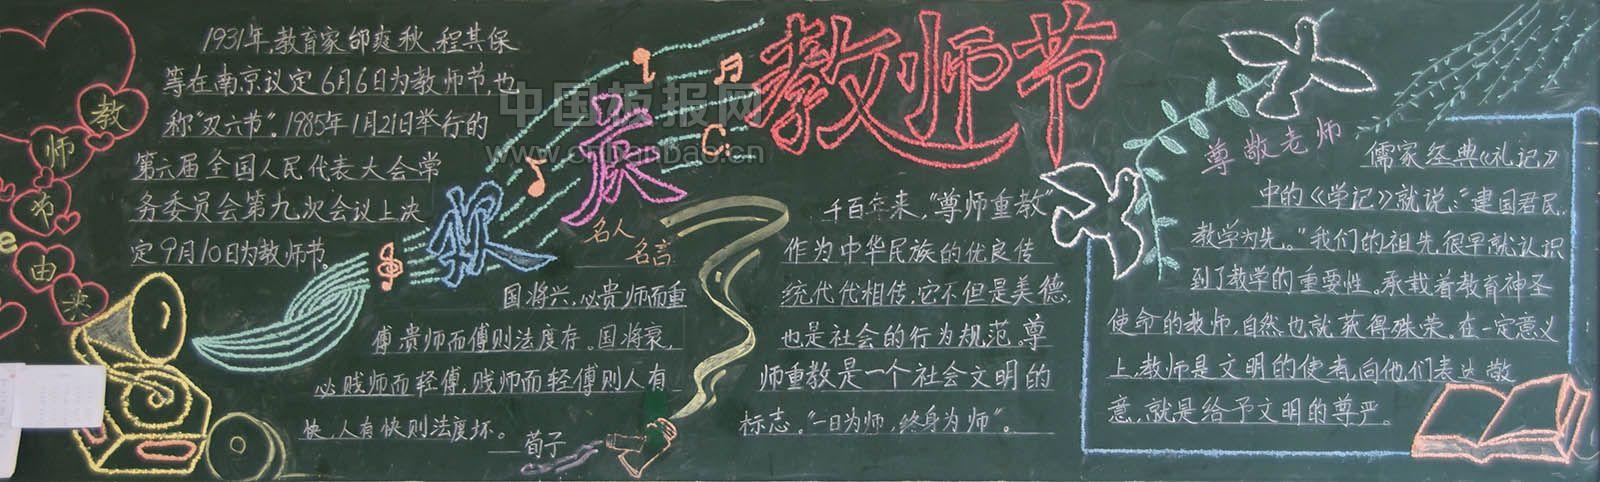 欢庆
教师节
教师节由来
1931年,教育家邰爽秋、程其保
等在南京议定6月6日为教师节,也
称"双六节"。1985年1月21日举行的
第六届全国人民代表大会常
务委员会第九次会议上决
定9月10日为教师节。
名人
名言
国将兴,必贵师而重
傅贵师而傅则法度存。国将衰,
必贱师而轻傅,贱师而轻傅则人有
快,人有快则法度坏。
荀子
千百年来,"尊师重教"
作为中华民族的优良传
统代代相传,它不但是美德,
也是社会的行为规范。尊
师重教是一个社会文明的
标志。"一日为师,终身为师"。
尊敬老师
儒家经典《礼记》
中的《学记》就说:"建国君民,
教学为先。"我们的祖先很早就认识
到了教学的重要性,承载着教育神圣
使命的教师,自然也就获得殊荣。在一定意义
上,教师是文明的使者,向他们表达敬
意,就是给予文明的尊严。
中国板报网
www.cnbanbao.cn